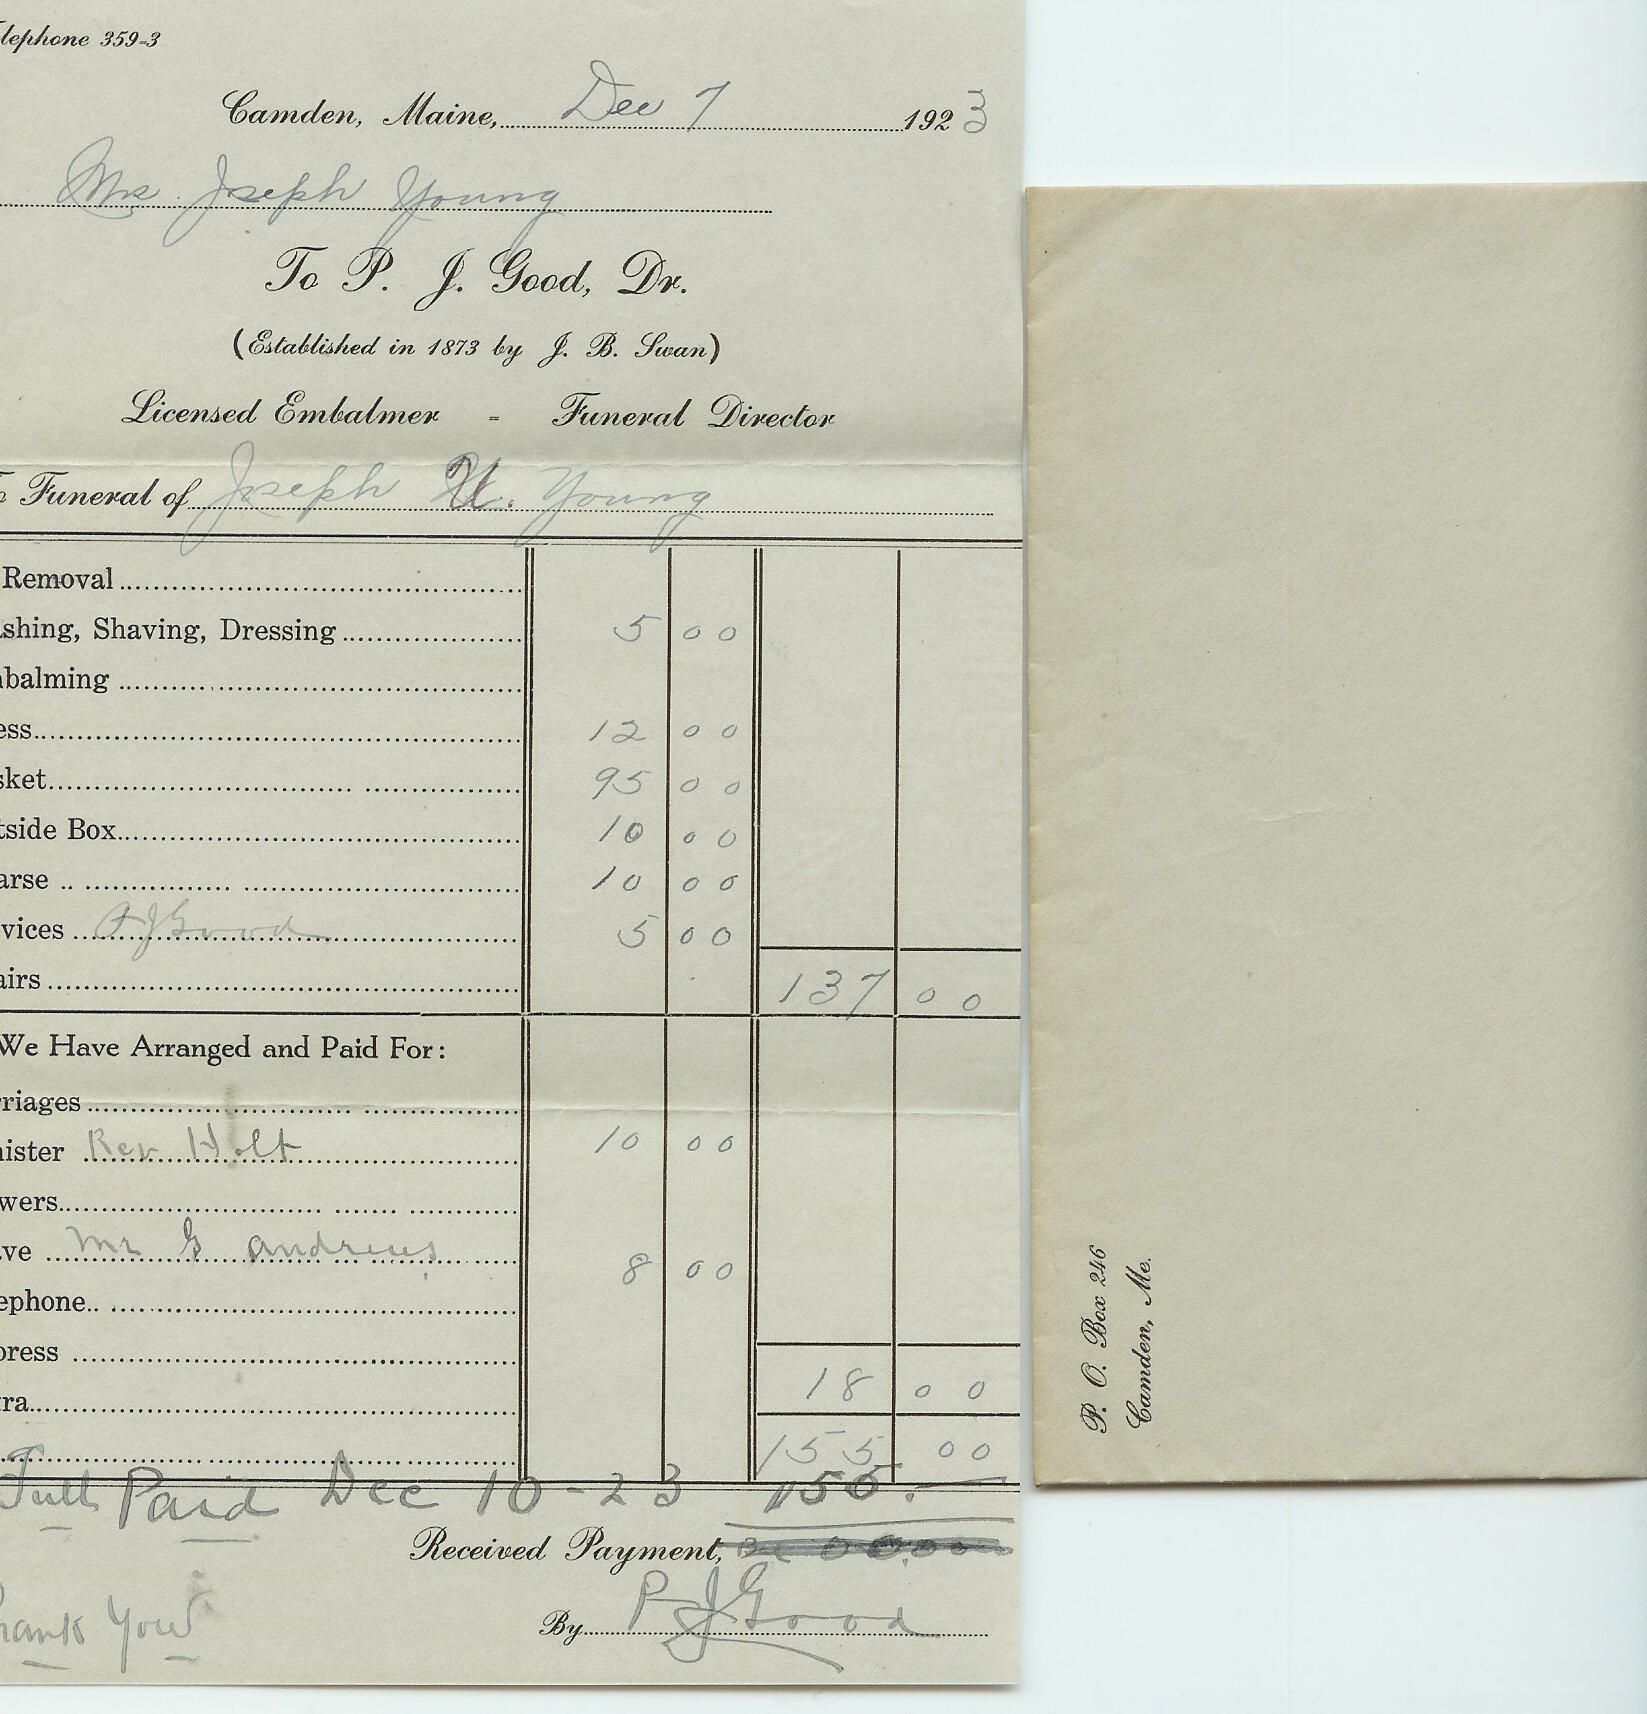 elephone 359-3
Camden, Maine, Dec 7 1923
Mrs Joseph Young
To P. J. Good, Dr.
(Established in 1873 by J. B. Swan)
Licensed Embalmer - Funeral Director
o Funeral of Joseph U. Young
Removal
shing, Shaving, Dressing 5 00
balming
ess 12 00
sket 95 00
tside Box 10 00
arse 10 00
vices P J Good 5 00
airs 137 00
We Have Arranged and Paid For:
rriages
nister Rev Holt 10 00
wers
ve Mr G Andrews 8 00
ephone
press
tra 18 00
155 00
Full Paid Dec 10-23 155.
Received Payment,
hank You
By P J Good
P. O. Box 246
Camden, Me.